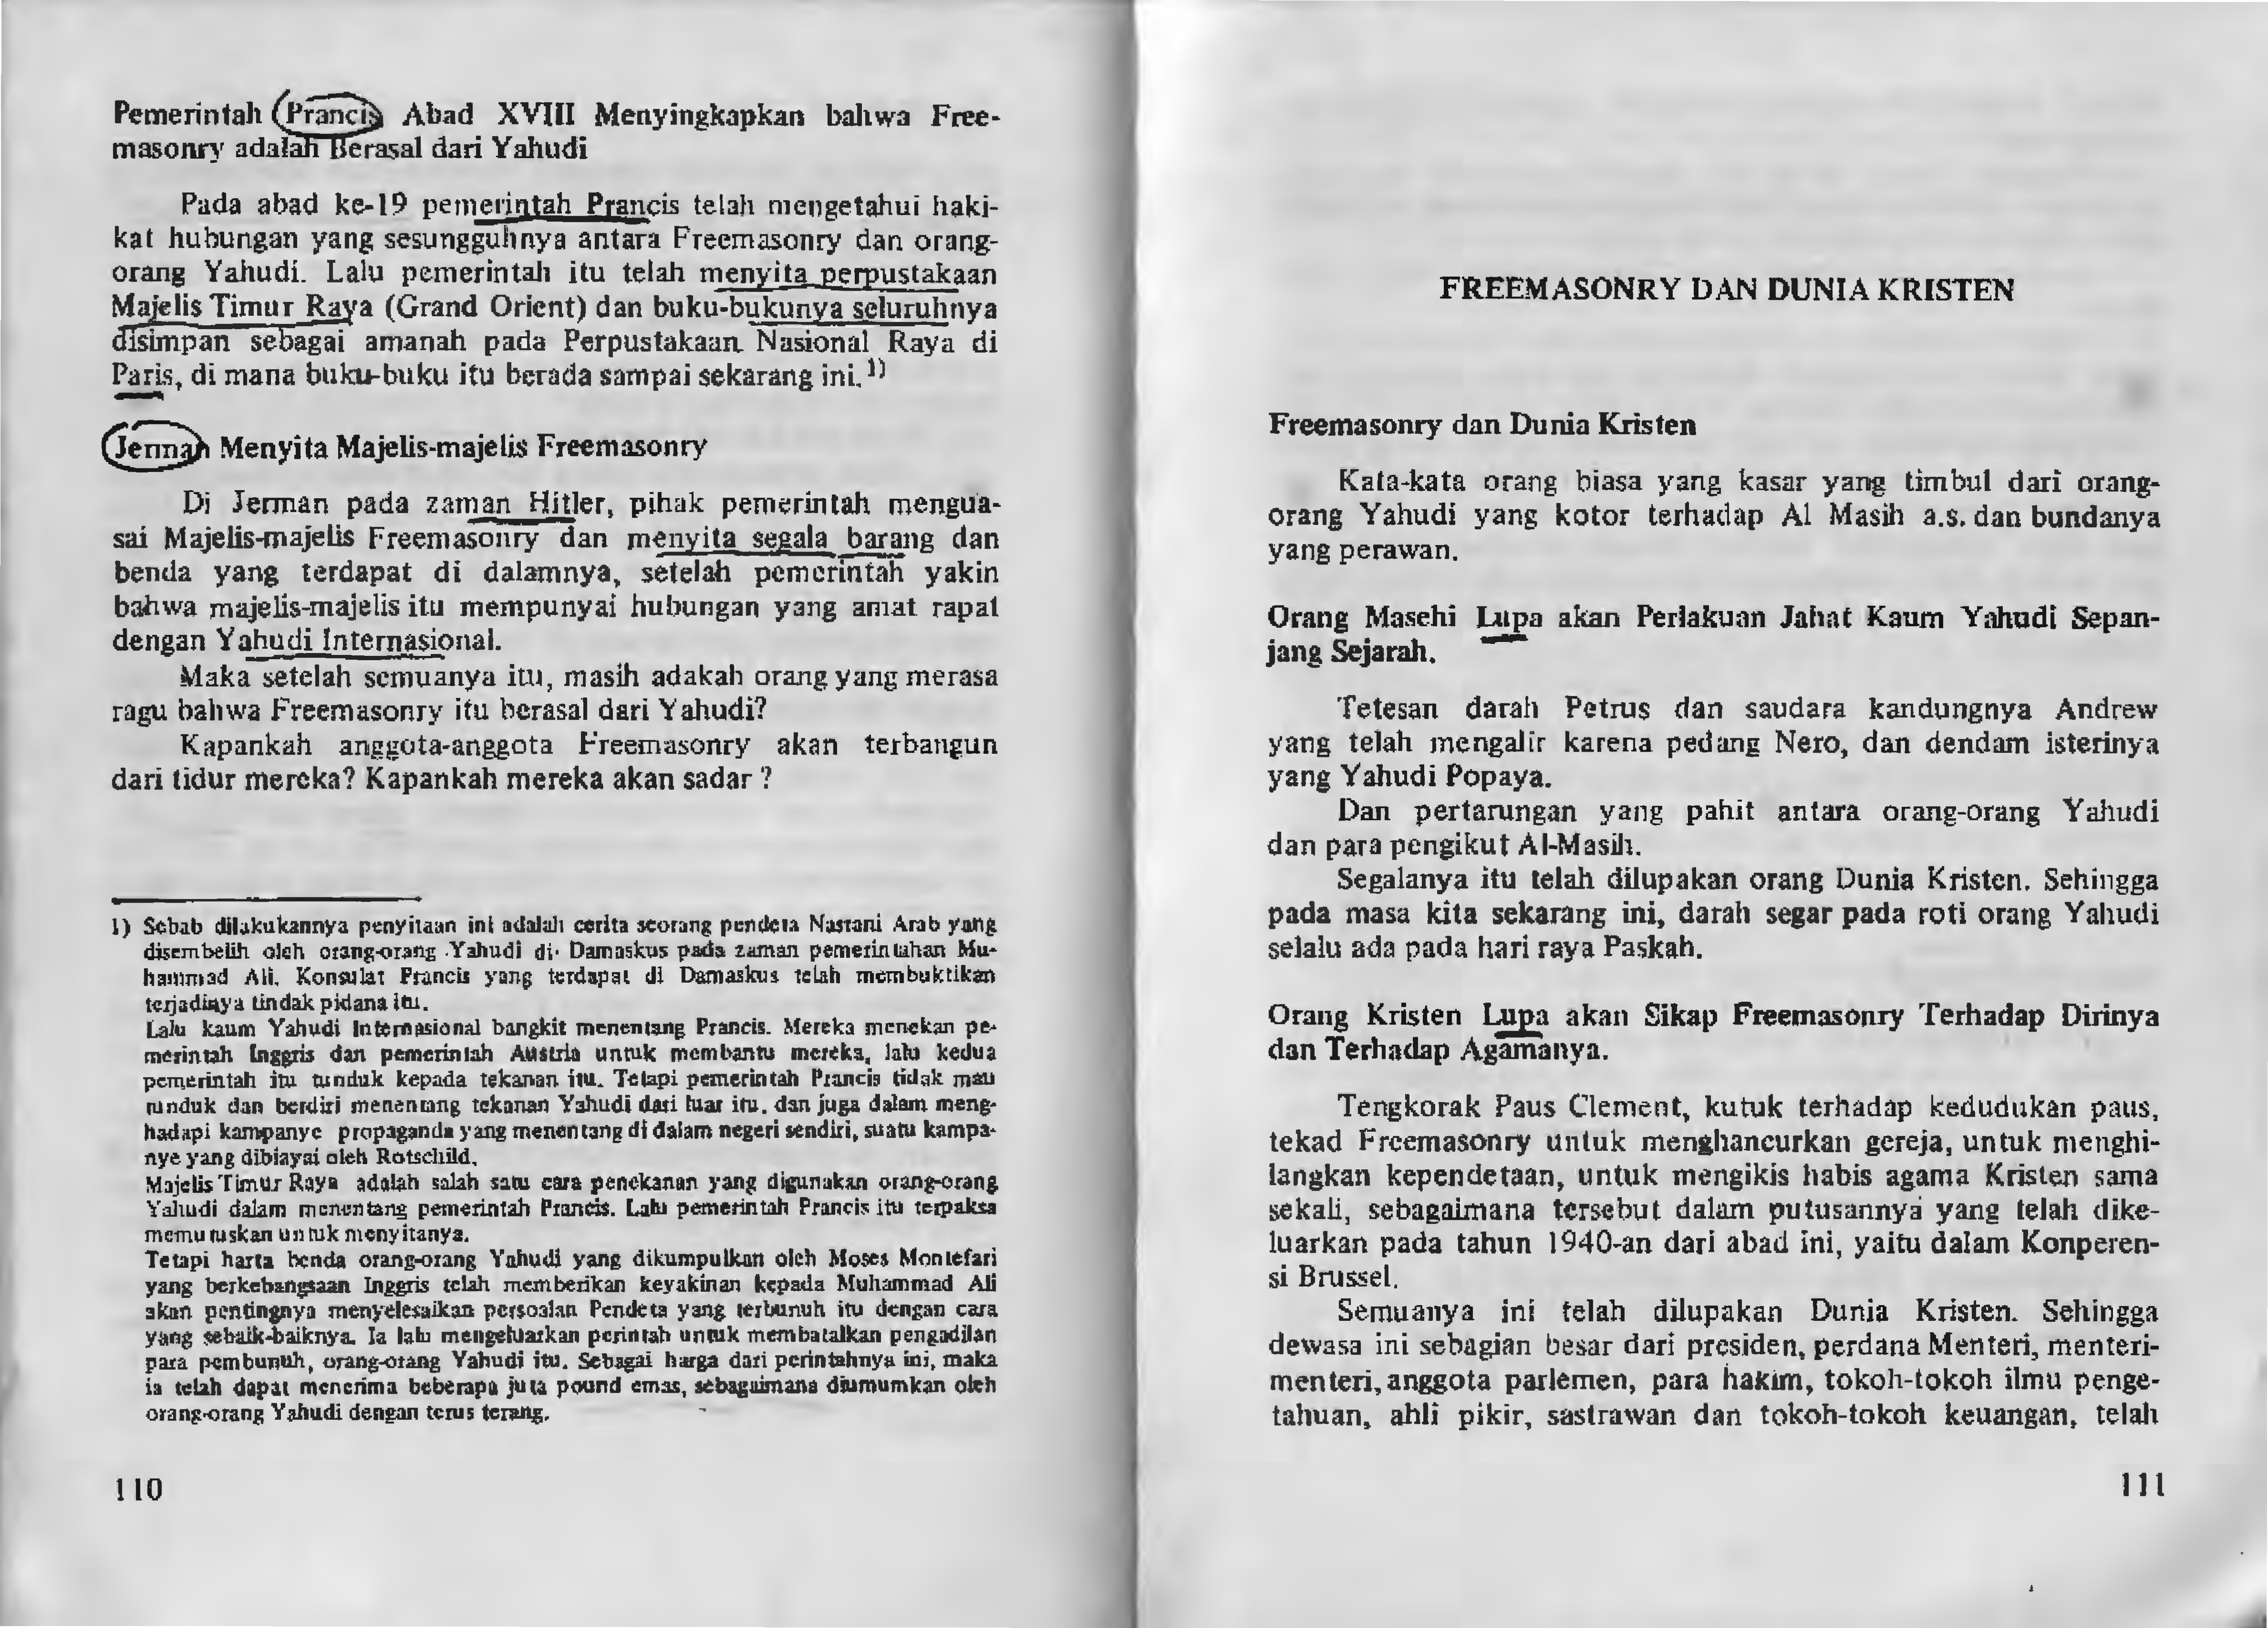 Pemerintah Prancis Abad XVIII Menyingkapkan bahwa Free-
masonry adalah Berasal dari Yahudi
Pada abad ke-19 pemerintah Prancis telah mengetahui haki-
kat hubungan yang sesungguhnya antara Freemasonry dan orang-
orang Yahudi. Lalu pemerintah itu telah menyita perpustakaan
Majelis Timur Raya (Grand Orient) dan buku-bukunya seluruhnya
disimpan sebagai amanah pada Perpustakaan Nasional Raya di
Paris, di mana buku-buku itu berada sampai sekarang ini. 1)
Jerman Menyita Majelis-majelis Freemasonry
Di Jerman pada zaman Hitler, pihak pemerintah mengua-
sai Majelis-majelis Freemasonry dan menyita segala barang dan
benda yang terdapat di dalamnya, setelah pemerintah yakin
bahwa majelis-majelis itu mempunyai hubungan yang amat rapat
dengan Yahudi Internasional.
Maka setelah semuanya itu, masih adakah orang yang merasa
ragu bahwa Freemasonry itu berasal dari Yahudi?
Kapankah anggota-anggota Freemasonry akan terbangun
dari tidur mereka? Kapankah mereka akan sadar ?
1) Sebab dilakukannya penyitaan ini adalah cerita seorang pendeta Nasrani Arab yang
disembelih oleh orang-orang Yahudi di Damaskus pada zaman pemerintahan Mu-
hammad Ali. Konsulat Prancis yang terdapat di Damaskus telah membuktikan
terjadinya tindak pidana itu.
Lalu kaum Yahudi Internasional bangkit menentang Prancis. Mereka menekan pe-
merintah Inggris dan pemerintah Austria untuk membantu mereka, lalu kedua
pemerintah itu tunduk kepada tekanan itu. Tetapi pemerintah Prancis tidak mau
tunduk dan berdiri menentang tekanan Yahudi dari luar itu, dan juga dalam meng-
hadapi kampanye propaganda yang menentang di dalam negeri sendiri, suatu kampa-
nye yang dibiayai oleh Rotschild.
Majelis Timur Raya adalah salah satu cara penekanan yang digunakan orang-orang
Yahudi dalam menentang pemerintah Prancis. Lalu pemerintah Prancis itu terpaksa
memutuskan untuk menyitanya.
Tetapi harta benda orang-orang Yahudi yang dikumpulkan oleh Moses Montefari
yang berkebangsaan Inggris telah memberikan keyakinan kepada Muhammad Ali
akan pentingnya menyelesaikan persoalan Pendeta yang terbunuh itu dengan cara
yang sebaik-baiknya. Ia lalu mengeluarkan perintah untuk membatalkan pengadilan
para pembunuh, orang-orang Yahudi itu. Sebagai harga dari perintahnya ini, maka
ia telah dapat menerima beberapa juta pound emas, sebagaimana diumumkan oleh
orang-orang Yahudi dengan terus terang.
110
FREEMASONRY DAN DUNIA KRISTEN
Freemasonry dan Dunia Kristen
Kata-kata orang biasa yang kasar yang timbul dari orang-
orang Yahudi yang kotor terhadap Al Masih a.s. dan bundanya
yang perawan.
Orang Masehi Lupa akan Perlakuan Jahat Kaum Yahudi Sepan-
jang Sejarah.
Tetesan darah Petrus dan saudara kandungnya Andrew
yang telah mengalir karena pedang Nero, dan dendam isterinya
yang Yahudi Popaya.
Dan pertarungan yang pahit antara orang-orang Yahudi
dan para pengikut Al-Masih.
Segalanya itu telah dilupakan orang Dunia Kristen. Sehingga
pada masa kita sekarang ini, darah segar pada roti orang Yahudi
selalu ada pada hari raya Paskah.
Orang Kristen Lupa akan Sikap Freemasonry Terhadap Dirinya
dan Terhadap Agamanya.
Tengkorak Paus Clement, kutuk terhadap kedudukan paus,
tekad Freemasonry untuk menghancurkan gereja, untuk menghi-
langkan kependetaan, untuk mengikis habis agama Kristen sama
sekali, sebagaimana tersebut dalam putusannya yang telah dike-
luarkan pada tahun 1940-an dari abad ini, yaitu dalam Konperen-
si Brussel.
Semuanya ini telah dilupakan Dunia Kristen. Sehingga
dewasa ini sebagian besar dari presiden, perdana Menteri, menteri-
menteri, anggota parlemen, para hakim, tokoh-tokoh ilmu penge-
tahuan, ahli pikir, sastrawan dan tokoh-tokoh keuangan, telah
111